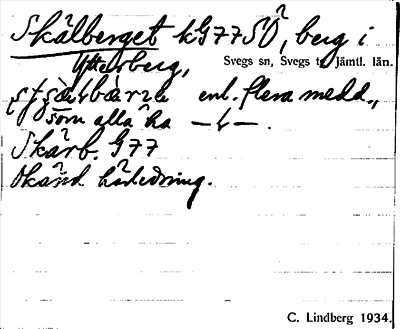 Skälberget kG77SÖ, berg i
Ytterberg,
Svegs sn, Svegs t:g Jämtl. län.
enl. flera medd.,
som alla ha — l —.
Skärb. G77
Okänd härledning.
C. Lindberg 1934.